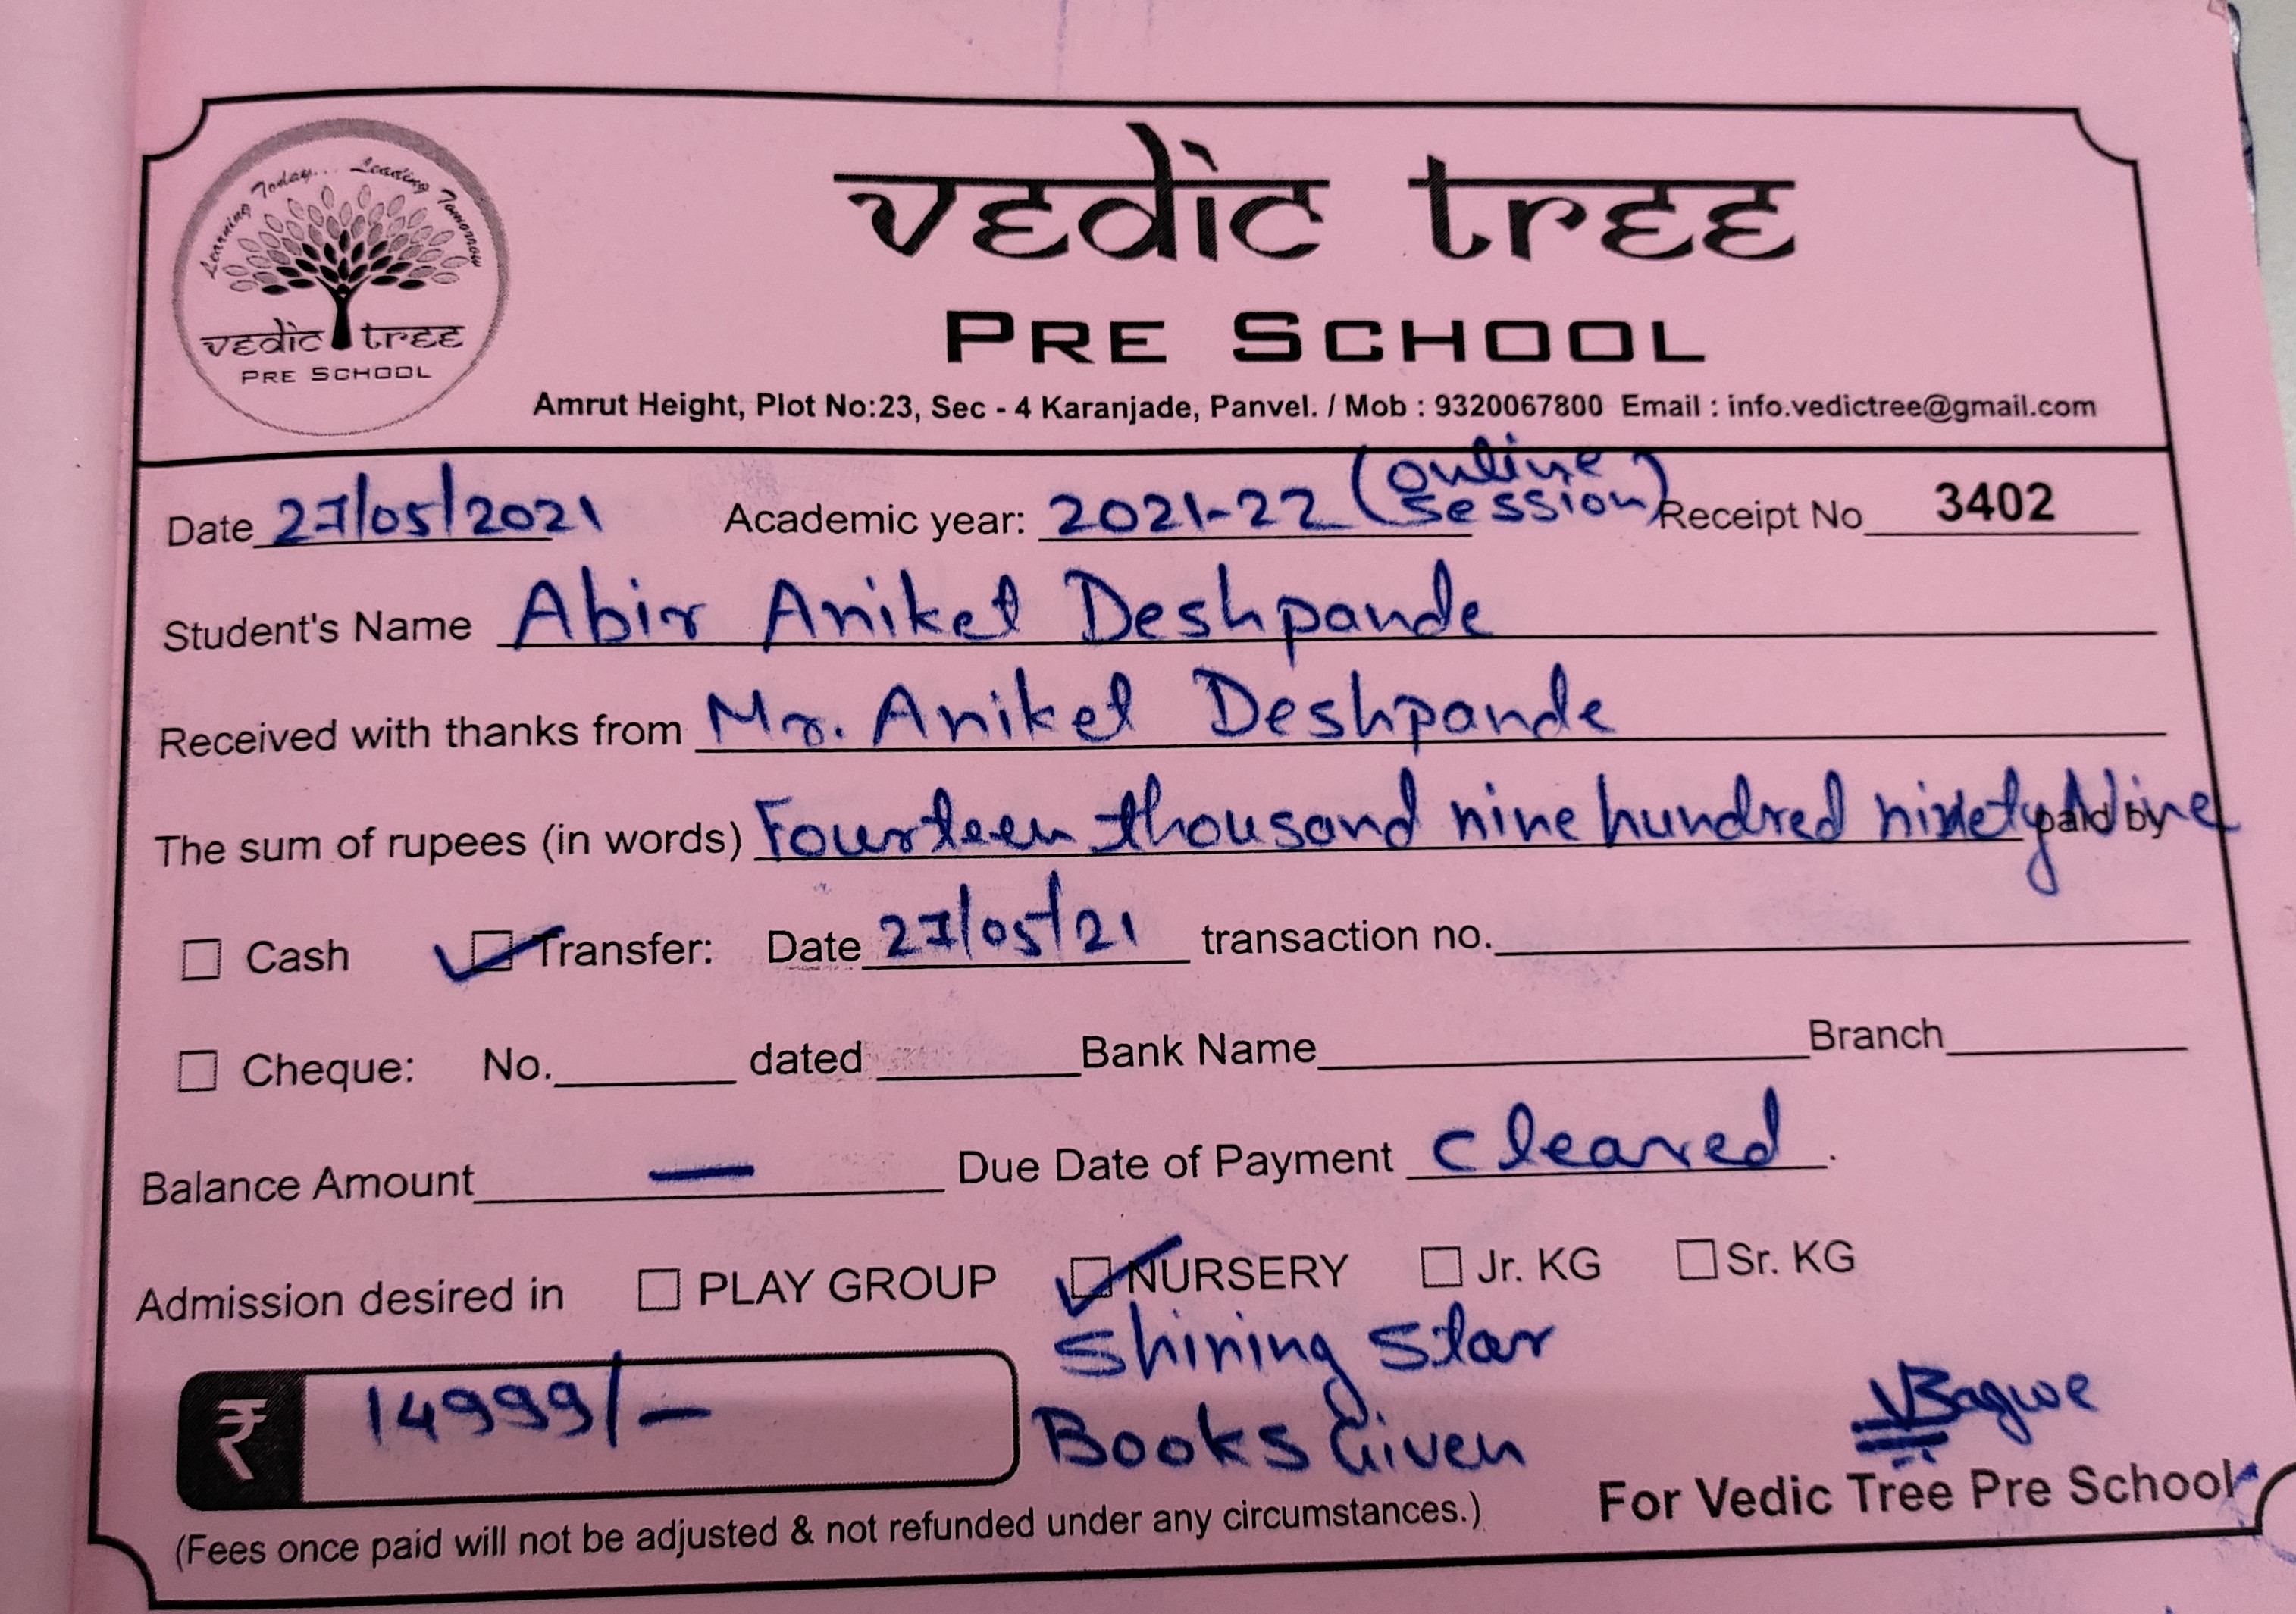 Learning Today... Leading Tomorrow
vedic tree
PRE SCHOOL
vedic tree
PRE SCHOOL
Amrut Height, Plot No:23, Sec - 4 Karanjade, Panvel. / Mob : 9320067800 Email : info.vedictree@gmail.com
Date 27/05/2021 Academic year: 2021-22 (online session) Receipt No 3402
Student's Name Abir Aniket Deshpande
Received with thanks from Mr. Aniket Deshpande
The sum of rupees (in words) Fourteen thousand nine hundred ninety Nine paid by
Cash Transfer: Date 27/05/21 transaction no.
Cheque: No. dated Bank Name Branch
Balance Amount — Due Date of Payment cleared.
Admission desired in PLAY GROUP NURSERY Jr. KG Sr. KG
Shining Star
₹ 14999/-
Books Given
VBagwe
For Vedic Tree Pre School
(Fees once paid will not be adjusted & not refunded under any circumstances.)